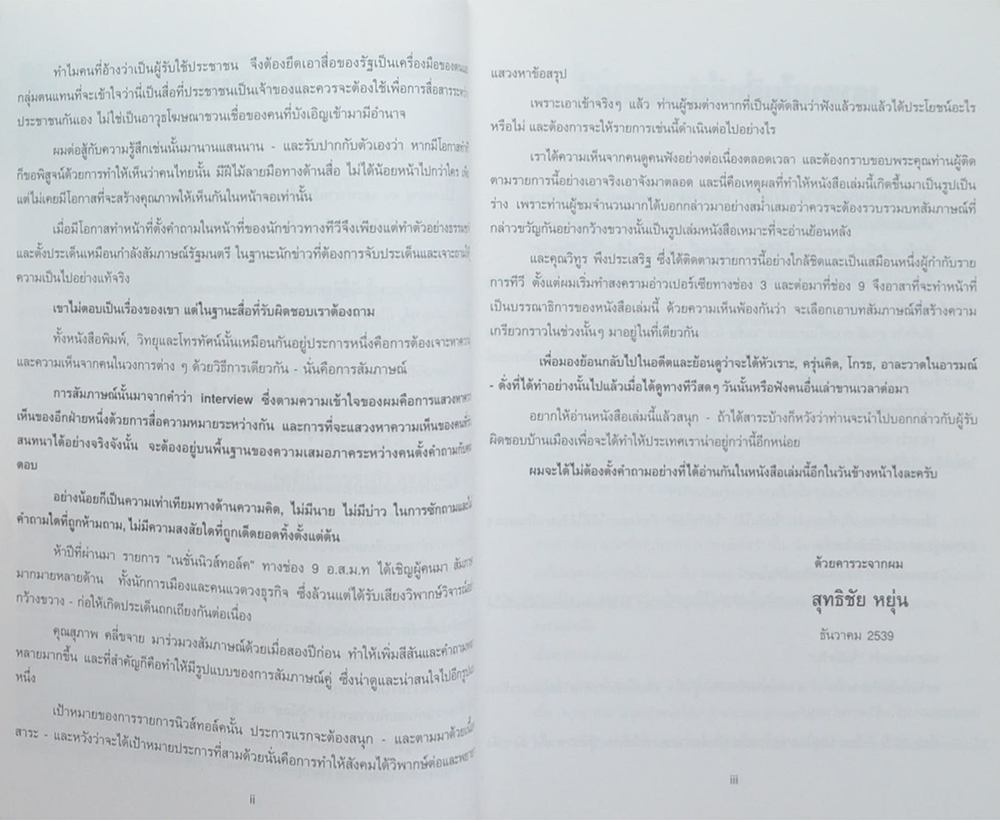 ทำไมคนที่อ้างว่าเป็นผู้รับใช้ประชาชน จึงต้องยึดเอาสื่อของรัฐเป็นเครื่องมือของตนและ
กลุ่มตนแทนที่จะเข้าใจว่านี่เป็นสื่อที่ประชาชนเป็นเจ้าของและควรจะต้องใช้เพื่อการสื่อสาร
ประชาชนกันเอง ไม่ใช่เป็นอาวุธโฆษณาชวนเชื่อของคนที่บังเอิญเข้ามามีอำนาจ
ผมต่อสู้กับความรู้สึกเช่นนั้นมานานแสนนาน - และรับปากกับตัวเองว่า หากมีโอกาส
ก็ขอพิสูจน์ด้วยการทำให้เห็นว่าคนไทยนั้น มีฝีไม้ลายมือทางด้านสื่อ ไม่ได้น้อยหน้าไปกว่าใคร
แต่ไม่เคยมีโอกาสที่จะสร้างคุณภาพให้เห็นกันในหน้าจอเท่านั้น
เมื่อมีโอกาสทำหน้าที่ตั้งคำถามในหน้าที่ของนักข่าวทางทีวีจึงเพียงแต่ทำตัวอย่าง
และตั้งประเด็นเหมือนกำลังสัมภาษณ์รัฐมนตรี ในฐานะนักข่าวที่ต้องการจับประเด็นและเจาะถาม
ความเป็นไปอย่างแท้จริง
เขาไม่ตอบเป็นเรื่องของเขา แต่ในฐานะสื่อที่รับผิดชอบเราต้องถาม
ทั้งหนังสือพิมพ์, วิทยุและโทรทัศน์นั้นเหมือนกันอยู่ประการหนึ่งคือการต้องเจาะหา
และความเห็นจากคนในวงการต่าง ๆ ด้วยวิธีการเดียวกัน - นั่นคือการสัมภาษณ์
การสัมภาษณ์นั้นมาจากคำว่า interview ซึ่งตามความเข้าใจของผมคือการแสวงหา
เห็นของอีกฝ่ายหนึ่งด้วยการสื่อความหมายระหว่างกัน และการที่จะแสวงหาความเห็นของคนที่
สนทนาได้อย่างจริงจังนั้น จะต้องอยู่บนพื้นฐานของความเสมอภาคระหว่างคนตั้งคำถามกับ
ตอบ
อย่างน้อยก็เป็นความเท่าเทียมทางด้านความคิด, ไม่มีนาย ไม่มีบ่าว ในการซักถามและ
คำถามใดที่ถูกห้ามถาม, ไม่มีความสงสัยใดที่ถูกเด็ดยอดทิ้งตั้งแต่ต้น
ห้าปีที่ผ่านมา รายการ "เนชั่นนิวส์ทอล์ค" ทางช่อง 9 อ.ส.ม.ท ได้เชิญผู้คนมา
มากมายหลายด้าน ทั้งนักการเมืองและคนแวดวงธุรกิจ ซึ่งล้วนแต่ได้รับเสียงวิพากษ์วิจารณ์
กว้างขวาง - ก่อให้เกิดประเด็นถกเถียงกันต่อเนื่อง
คุณสุภาพ คลี่ขจาย มาร่วมวงสัมภาษณ์ด้วยเมื่อสองปีก่อน ทำให้เพิ่มสีสันและคำถาม
หลายมากขึ้น และที่สำคัญก็คือทำให้มีรูปแบบของการสัมภาษณ์คู่ ซึ่งน่าดูและน่าสนใจไปอีก
หนึ่ง
เป้าหมายของการรายการนิวส์ทอล์คนั้น ประการแรกจะต้องสนุก - และตามมาด้วย
สาระ - และหวังว่าจะได้เป้าหมายประการที่สามด้วยนั่นคือการทำให้สังคมได้วิพากษ์ต่อและ
ii
แสวงหาข้อสรุป
เพราะเอาเข้าจริงๆ แล้ว ท่านผู้ชมต่างหากที่เป็นผู้ตัดสินว่าฟังแล้วชมแล้วได้ประโยชน์อะไร
หรือไม่ และต้องการจะให้รายการเช่นนี้ดำเนินต่อไปอย่างไร
เราได้ความเห็นจากคนดูคนฟังอย่างต่อเนื่องตลอดเวลา และต้องกราบขอบพระคุณท่านผู้ติด
ตามรายการนี้อย่างเอาจริงเอาจังมาตลอด และนี่คือเหตุผลที่ทำให้หนังสือเล่มนี้เกิดขึ้นมาเป็นรูปเป็น
ร่าง เพราะท่านผู้ชมจำนวนมากได้บอกกล่าวมาอย่างสม่ำเสมอว่าควรจะต้องรวบรวมบทสัมภาษณ์ที่
กล่าวขวัญกันอย่างกว้างขวางนั้นเป็นรูปเล่มหนังสือเหมาะที่จะอ่านย้อนหลัง
และคุณวิทูร พึงประเสริฐ ซึ่งได้ติดตามรายการนี้อย่างใกล้ชิดและเป็นเสมือนหนึ่งผู้กำกับราย
การทีวี ตั้งแต่ผมเริ่มทำสงครามอ่าวเปอร์เซียทางช่อง 3 และต่อมาที่ช่อง 9 จึงอาสาที่จะทำหน้าที่
เป็นบรรณาธิการของหนังสือเล่มนี้ ด้วยความเห็นพ้องกันว่า จะเลือกเอาบทสัมภาษณ์ที่สร้างความ
เกรียวกราวในช่วงนั้นๆ มาอยู่ในที่เดียวกัน
เพื่อมองย้อนกลับไปในอดีตและย้อนดูว่าจะได้หัวเราะ, ครุ่นคิด, โกรธ, อาละวาดในอารมณ์
- ดั่งที่ได้ทำอย่างนั้นไปแล้วเมื่อได้ดูทางทีวีสดๆ วันนั้นหรือฟังคนอื่นเล่าขานเวลาต่อมา
อยากให้อ่านหนังสือเล่มนี้แล้วสนุก - ถ้าได้สาระบ้างก็หวังว่าท่านจะนำไปบอกกล่าวกับผู้รับ
ผิดชอบบ้านเมืองเพื่อจะได้ทำให้ประเทศเราน่าอยู่กว่านี้อีกหน่อย
ผมจะได้ไม่ต้องตั้งคำถามอย่างที่ได้อ่านกันในหนังสือเล่มนี้อีกในวันข้างหน้าไงละครับ
ด้วยคารวะจากผม
สุทธิชัย หยุ่น
ธันวาคม 2539
iii